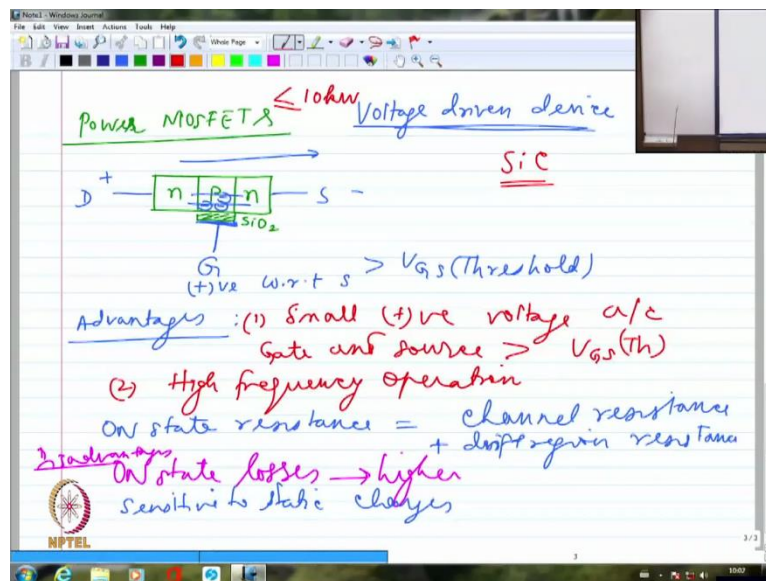 Note1 - Windows Journal
File Edit View Insert Actions Tools Help
Whole Page
B I
Power MOSFETS ≤10kW Voltage driven device
SiC
D + n p n S -
SiO2
G
(+)ve w.r.t s > VGS(Threshold)
Advantages : (1) Small (+)ve voltage a/c
Gate and source > VGS(Th)
(2) High frequency operation
ON state resistance = channel resistance
+ drift region resistance
Disadvantages
ON state losses → higher
Sensitive to static charges
NPTEL
3/3
3
10:02